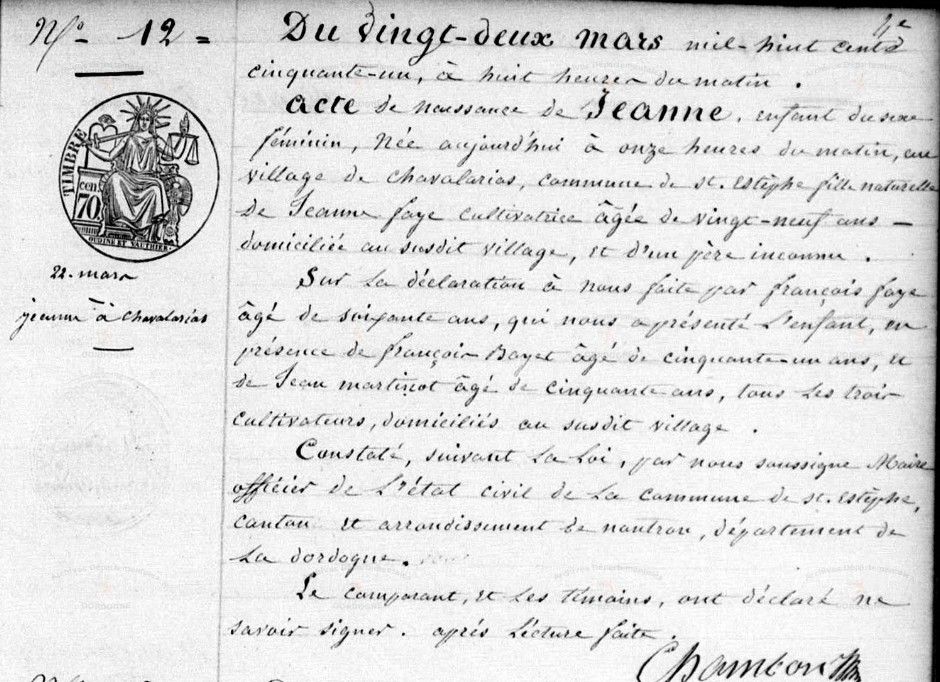 4e
N° 12 =
Du vingt-deux mars mil-huit cents
cinquante-un, à huit heures du matin .
acte de naissance de Jeanne, enfant du sexe
féminin, Née aujourd'hui à onze heures du matin, au
village de Chavalarias, commune de st. Estèphe fille naturelle
de Jeanne faye cultivatrice âgée de vingt-neuf ans –
domiciliée au susdit village, et d'un père inconnu .
TIMBRE
cen
70
OUDINÉ ET VAUTHIER.
22. mars
jeanne à Chavalarias
Sur La déclaration à nous faite par françois faye
âgé de soixante ans, qui nous a présenté L'enfant, en
présence de françois Bayet âgé de cinquante-un ans, et
de Jean martinot âgé de cinquante ans, tous Les trois
cultivateurs, domiciliés au susdit village .
Constaté, suivant La Loi, par nous soussigné Maire
officier de L'état civil de La commune de st. Estèphe,
canton et arrondissement de nontron, département de
La dordogne.
Le comparant, et Les témoins, ont déclaré ne
savoir signer. après Lecture faite .